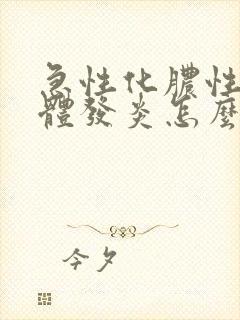 急性化膿性
體發炎怎麼
今夕